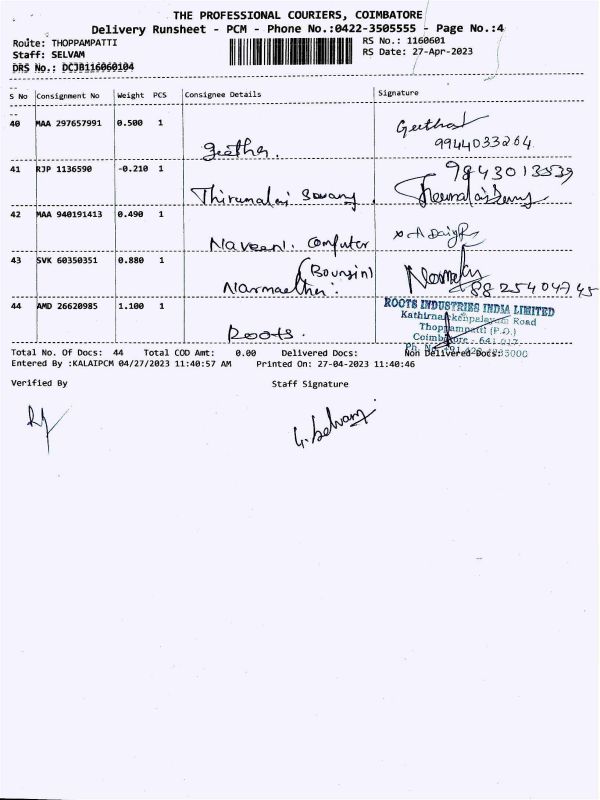 THE PROFESSIONAL COURIERS, COIMBATORE
Delivery Runsheet - PCM - Phone No.:0422-3505555 - Page No.:4
Route: THOPPAMPATTI
RS No.: 1160601
Staff: SELVAM
RS Date: 27-Apr-2023
DRS No.: DCJB116060104
S No Consignment No Weight PCS Consignee Details Signature
40 MAA 297657991 0.500 1
Geetha
9944033264
geetha.
41 RJP 1136590 -0.210 1
9843013539
Thirumalai
42 MAA 940191413 0.490 1
Naveen. Computer
43 SVK 60350351 0.880 1
44 AMD 26620985 1.100 1
ROOTS INDUSTRIES INDIA LIMITED
Road
Thoppampatti (P.O.)
Coimbatore - 641 017
Roots.
Total No. Of Docs: 44 Total COD Amt: 0.00 Delivered Docs: Non Delivered Docs:
Entered By :KALAIPCM 04/27/2023 11:40:57 AM Printed On: 27-04-2023 11:40:46
Verified By Staff Signature